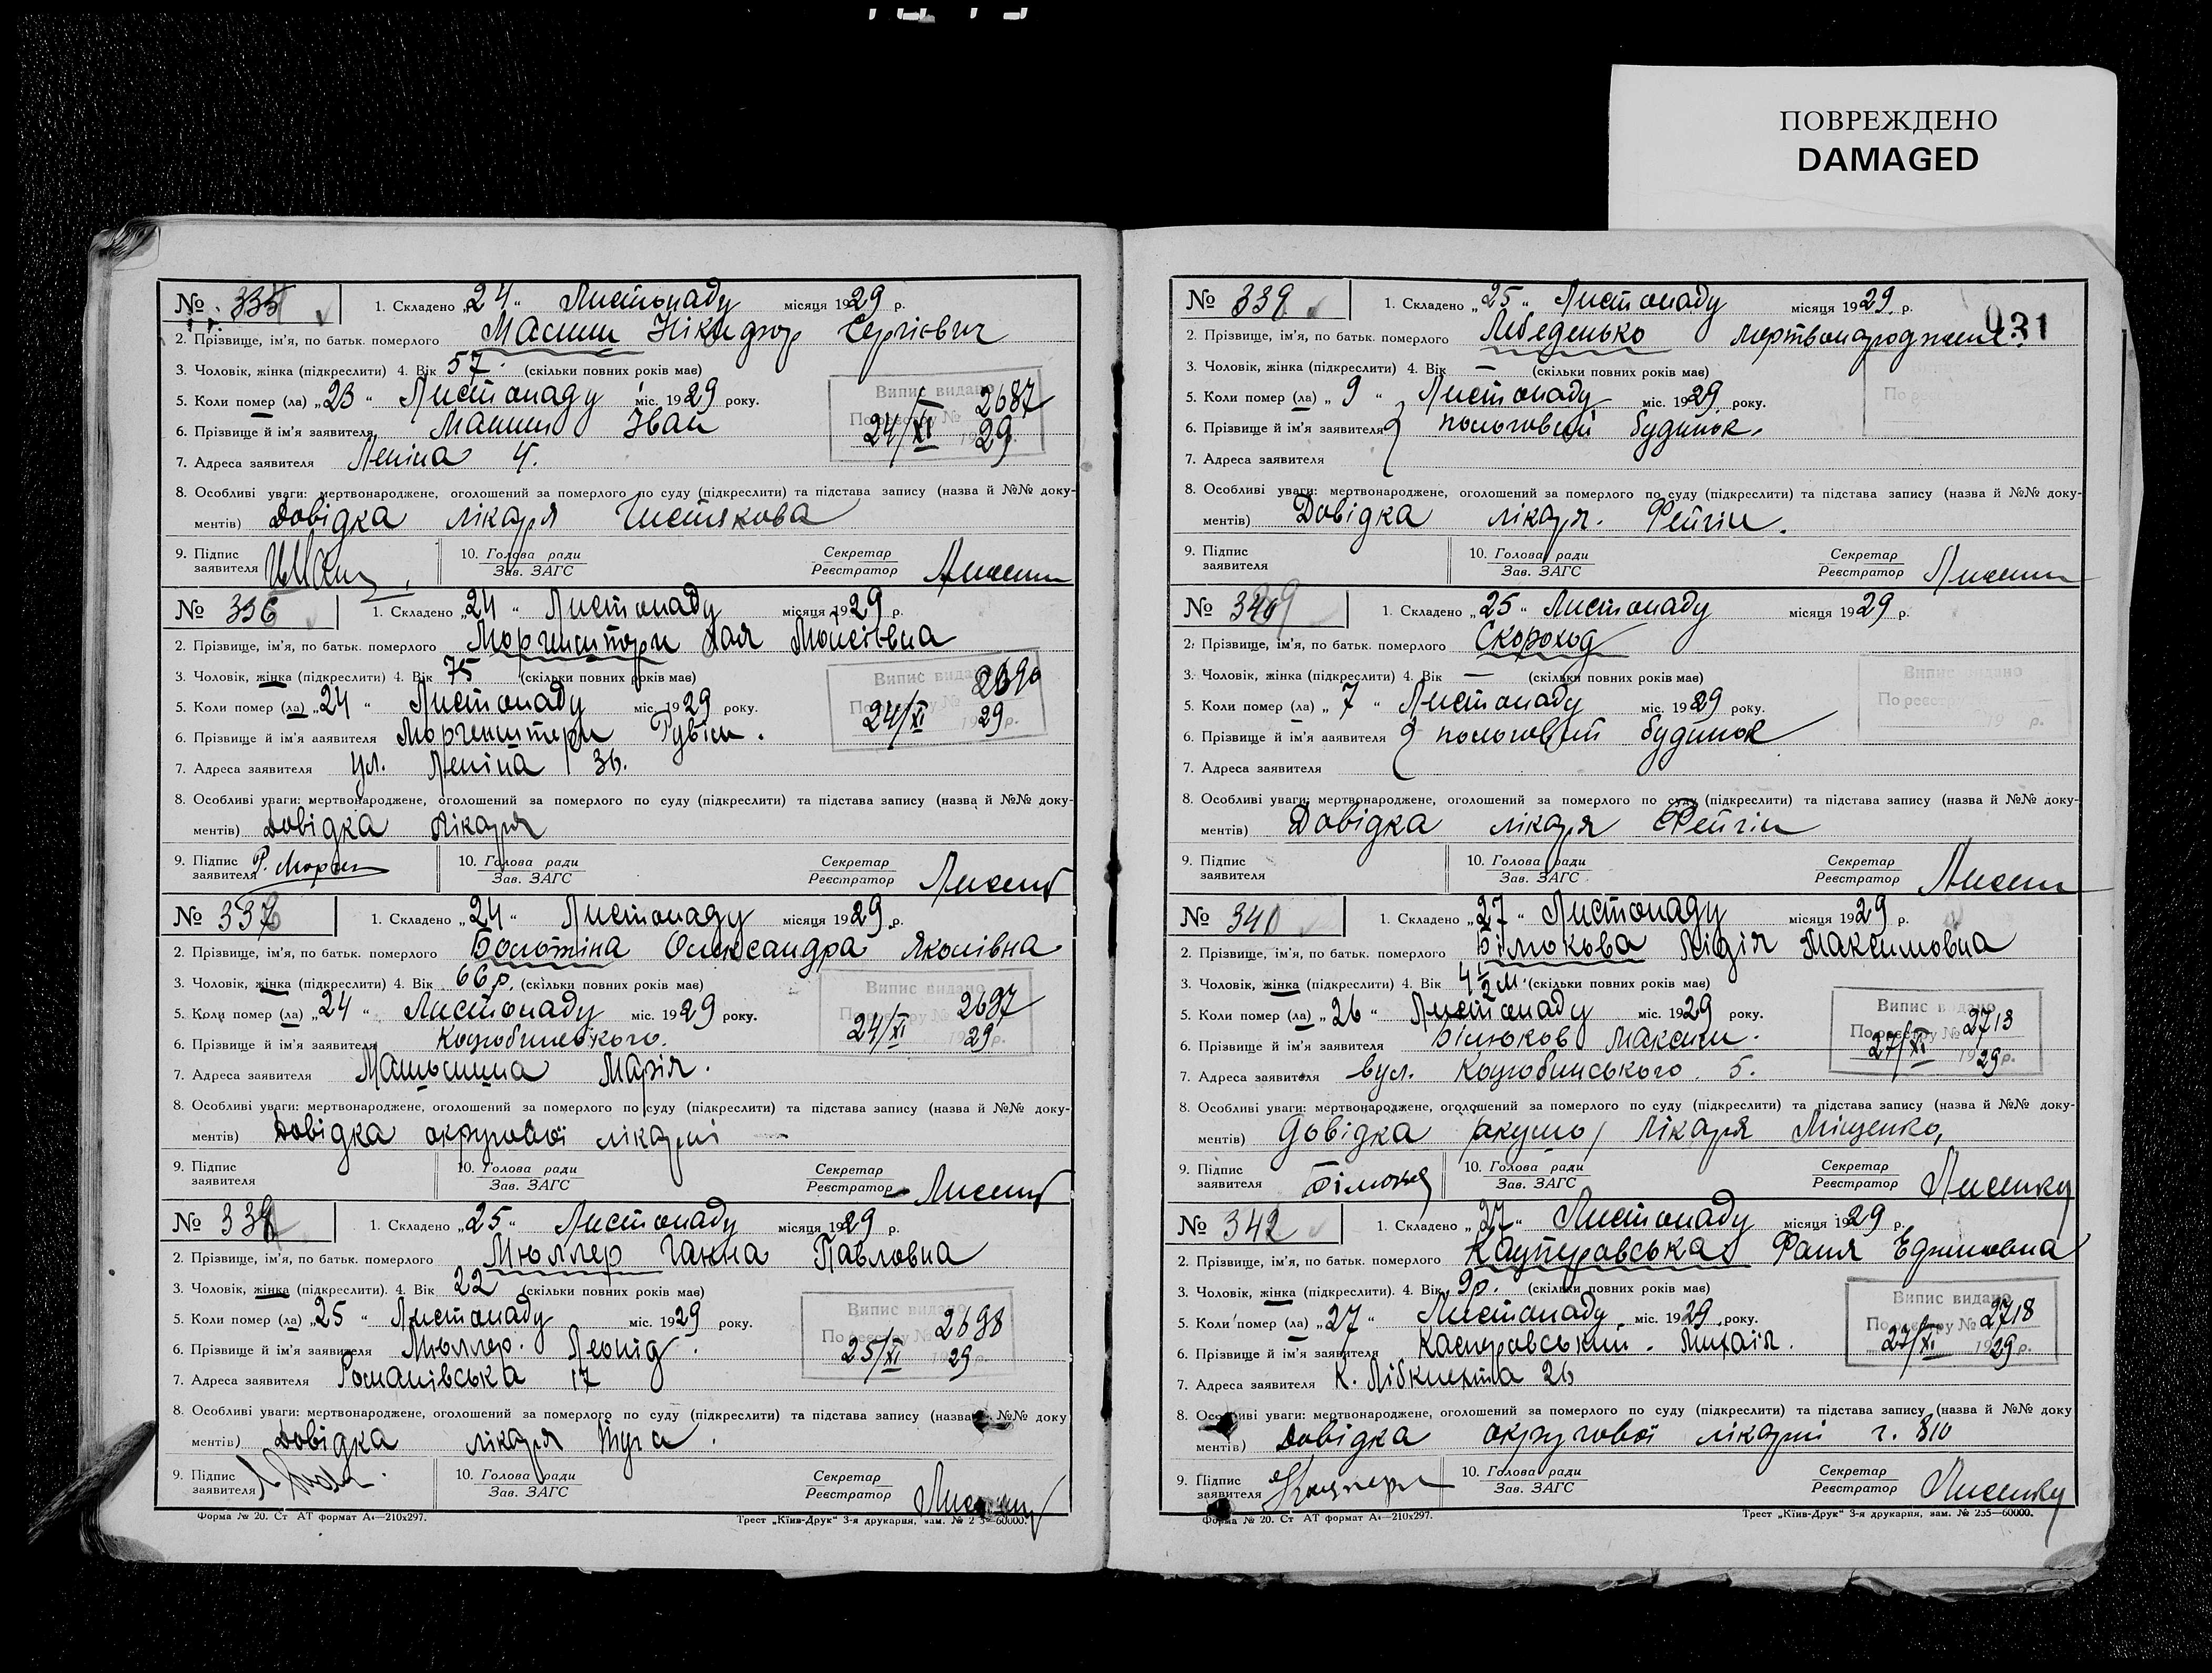 ПОВРЕЖДЕНО
DAMAGED
031
№ 335
1. Складено „24“ Листопаду місяця 1929 р.
2. Прізвище, ім'я, по батьк. померлого Масжин Нікифор Сергієвич
3. Чоловік, жінка (підкреслити) 4. Вік 57. (скільки повних років має)
5. Коли помер (ла) „23“ Листопаду міс. 1929 року.
6. Прізвище й ім'я заявителя Іван
7. Адреса заявителя Леніна 4.
Випис видано
По реєстру № 2687
24/XI 1929
8. Особливі уваги: мертвонароджене, оголошений за померлого по суду (підкреслити) та підстава запису (назва й №№ доку-
ментів) Довідка лікаря Чистякова
9. Підпис заявителя
10. Голова ради
Зав. ЗАГС
Секретар
Реєстратор
№ 336
1. Складено „24“ Листопаду місяця 1929 р.
2. Прізвище, ім'я, по батьк. померлого Моргенштерн Хая Мойсівна
3. Чоловік, жінка (підкреслити) 4. Вік 75 (скільки повних років має)
5. Коли помер (ла) „24“ Листопаду міс. 1929 року.
6. Прізвище й ім'я заявителя Моргенштерн Рувін.
7. Адреса заявителя ул. Леніна 36.
Випис видано
По реєстру № 2690
24/XI 1929 р.
8. Особливі уваги: мертвонароджене, оголошений за померлого по суду (підкреслити) та підстава запису (назва й №№ доку-
ментів) Довідка лікаря
9. Підпис заявителя Р. Морген
10. Голова ради
Зав. ЗАГС
Секретар
Реєстратор
№ 337
1. Складено „24“ Листопаду місяця 1929 р.
2. Прізвище, ім'я, по батьк. померлого Болотіна Олександра Яковівна
3. Чоловік, жінка (підкреслити) 4. Вік 66 р. (скільки повних років має)
5. Коли помер (ла) „24“ Листопаду міс. 1929 року.
6. Прізвище й ім'я заявителя Коцюбинського.
7. Адреса заявителя Марія.
Випис видано
По реєстру № 2697
24/XI 1929 р.
8. Особливі уваги: мертвонароджене, оголошений за померлого по суду (підкреслити) та підстава запису (назва й №№ доку-
ментів) Довідка округової лікарні
9. Підпис заявителя
10. Голова ради
Зав. ЗАГС
Секретар
Реєстратор
№ 338
1. Складено „25“ Листопаду місяця 1929 р.
2. Прізвище, ім'я, по батьк. померлого Мюллер Ганна Павловна
3. Чоловік, жінка (підкреслити). 4. Вік 22 (скільки повних років має)
5. Коли помер (ла) „25“ Листопаду міс. 1929 року.
6. Прізвище й ім'я заявителя Мюллер. Леонід.
7. Адреса заявителя Романівська 17
Випис видано
По реєстру № 2698
25/XI 1929 р.
8. Особливі уваги: мертвонароджене, оголошений за померлого по суду (підкреслити) та підстава запису (назва й №№ доку
ментів) Довідка лікаря
9. Підпис заявителя
10. Голова ради
Зав. ЗАГС
Секретар
Реєстратор
Форма № 20. Ст АТ формат А4—210х297.
Трест „Київ-Друк“ 3-я друкарня, зам. № 2 5—60000.
№ 339
1. Складено „25“ Листопаду місяця 1929. р.
2. Прізвище, ім'я, по батьк. померлого Лебеденько мертвонароджене.
3. Чоловік, жінка (підкреслити) 4. Вік — (скільки повних років має)
5. Коли помер (ла) „9“ Листопаду міс. 1929 року.
6. Прізвище й ім'я заявителя пологовий будинок.
7. Адреса заявителя
8. Особливі уваги: мертвонароджене, оголошений за померлого по суду (підкреслити) та підстава запису (назва й №№ доку-
ментів) Довідка лікаря. Фейгін.
9. Підпис заявителя
10. Голова ради
Зав. ЗАГС
Секретар
Реєстратор
№ 340
1. Складено „25“ Листопаду місяця 1929 р.
2. Прізвище, ім'я, по батьк. померлого Скороход
3. Чоловік, жінка (підкреслити) 4. Вік — (скільки повних років має)
5. Коли помер (ла) „7“ Листопаду міс. 1929 року.
6. Прізвище й ім'я заявителя пологовий будинок
7. Адреса заявителя
Випис видано
По реєстру
19 р.
8. Особливі уваги: мертвонароджене, оголошений за померлого по суду (підкреслити) та підстава запису (назва й №№ доку-
ментів) Довідка лікаря Фейгін
9. Підпис заявителя
10. Голова ради
Зав. ЗАГС
Секретар
Реєстратор
№ 340
1. Складено „27“ Листопаду місяця 1929 р.
2. Прізвище, ім'я, по батьк. померлого Білюкова Лідія Максимовна
3. Чоловік, жінка (підкреслити) 4. Вік 4 1/2 м. (скільки повних років має)
5. Коли помер (ла) „26“ Листопаду міс. 1929 року.
6. Прізвище й ім'я заявителя Білюков Максим.
7. Адреса заявителя вул. Коцюбинського 5.
Випис видано
По реєстру № 2713
27/XI 1929 р.
8. Особливі уваги: мертвонароджене, оголошений за померлого по суду (підкреслити) та підстава запису (назва й №№ доку-
ментів) Довідка лікаря Міщенко,
9. Підпис заявителя
10. Голова ради
Зав. ЗАГС
Секретар
Реєстратор
№ 342
1. Складено „27“ Листопаду місяця 1929 р.
2. Прізвище, ім'я, по батьк. померлого Касперовська Фаня
3. Чоловік, жінка (підкреслити). 4. Вік 9 р. (скільки повних років має)
5. Коли помер (ла) „27“ Листопаду міс. 1929 року.
6. Прізвище й ім'я заявителя Касперовський. Михаїл.
7. Адреса заявителя К. Лібкнехта 26
Випис видано
По реєстру № 2718
27/XI 1929 р.
8. Особливі уваги: мертвонароджене, оголошений за померлого по суду (підкреслити) та підстава запису (назва й №№ доку
ментів) Довідка округової лікарні ч. 810
9. Підпис заявителя
10. Голова ради
Зав. ЗАГС
Секретар
Реєстратор
Форма № 20. Ст АТ формат А4—210х297.
Трест „Київ-Друк“ 3-я друкарня, зам. № 255—60000.